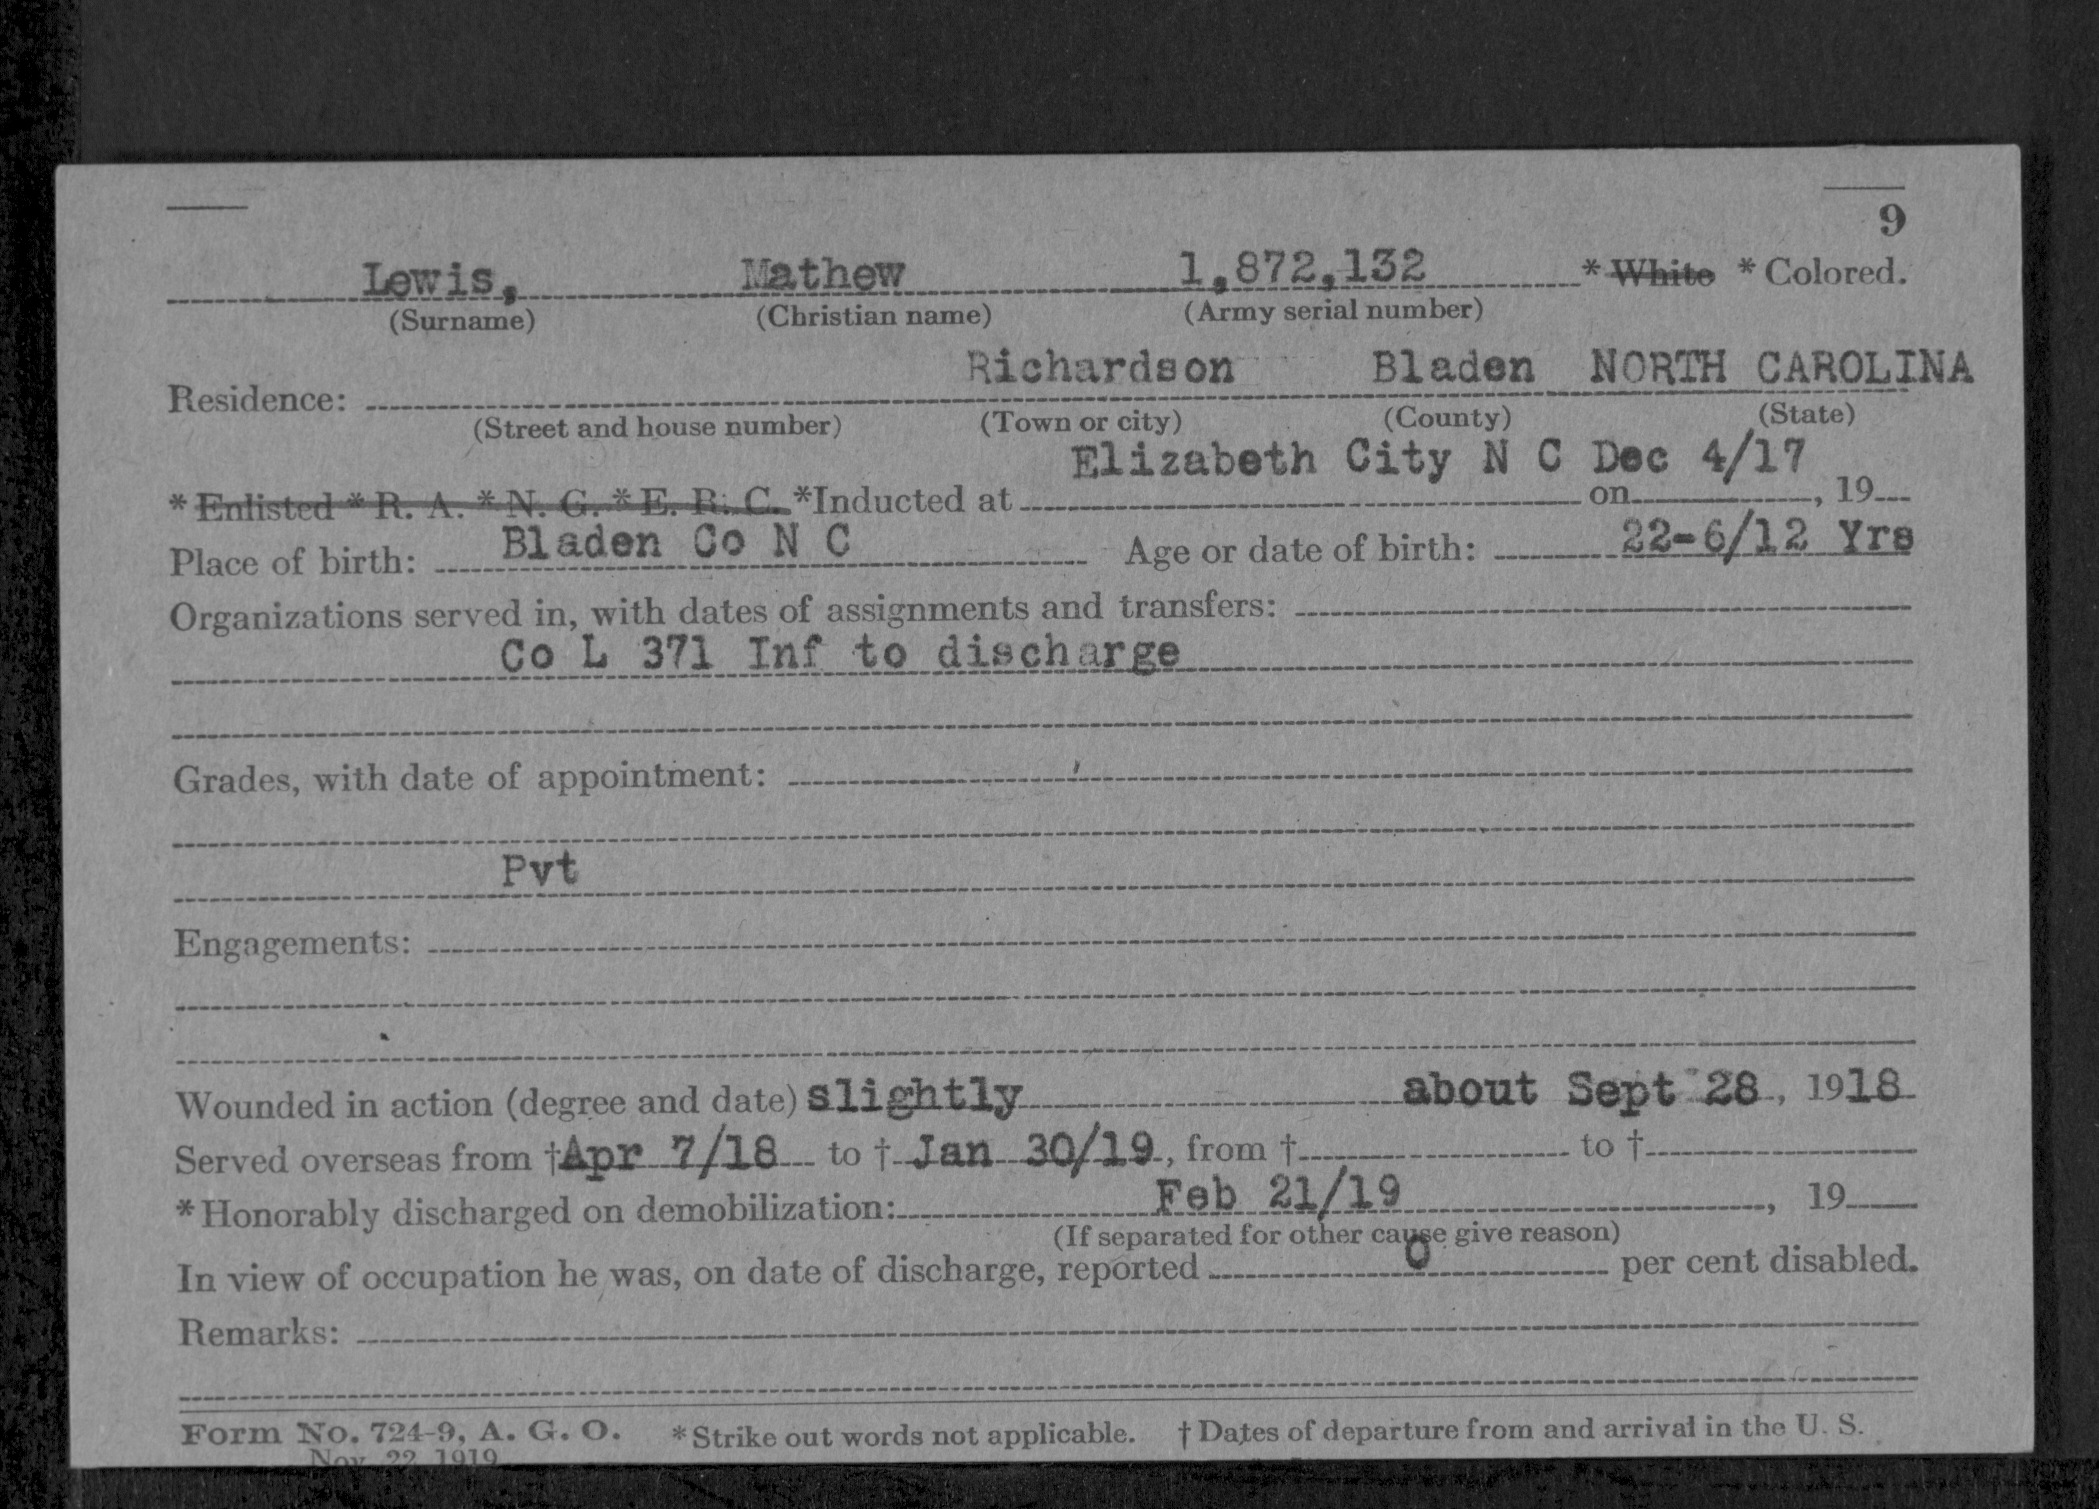 9
Lewis, Mathew 1,872,132 * White * Colored.
(Surname) (Christian name) (Army serial number)
Richardson Bladen NORTH CAROLINA
Residence:
(Street and house number) (Town or city) (County) (State)
Elizabeth City N C Dec 4/17
* Enlisted * R. A. * N. G. * E. R. C. *Inducted at on , 19
Place of birth: Bladen Co N C Age or date of birth: 22-6/12 Yrs
Organizations served in, with dates of assignments and transfers:
Co L 371 Inf to discharge
Grades, with date of appointment:
Pvt
Engagements:
Wounded in action (degree and date) slightly about Sept 28, 1918
Served overseas from †Apr 7/18 to † Jan 30/19, from † to †
*Honorably discharged on demobilization: Feb 21/19 , 19
(If separated for other cause give reason)
In view of occupation he was, on date of discharge, reported 0 per cent disabled.
Remarks:
Form No. 724-9, A. G. O. *Strike out words not applicable. † Dates of departure from and arrival in the U. S.
Nov. 22, 1919